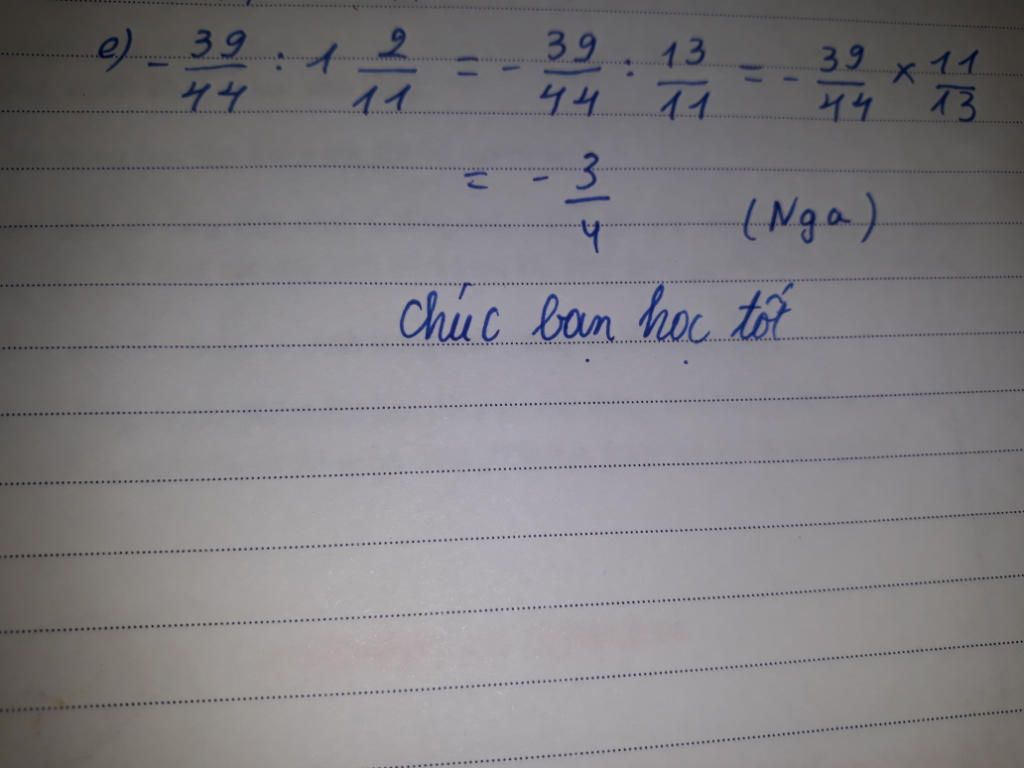 e) - 39/44 : 1 2/11 = - 39/44 : 13/11 = - 39/44 × 11/13
= - 3/4 (Nga)
Chúc bạn học tốt